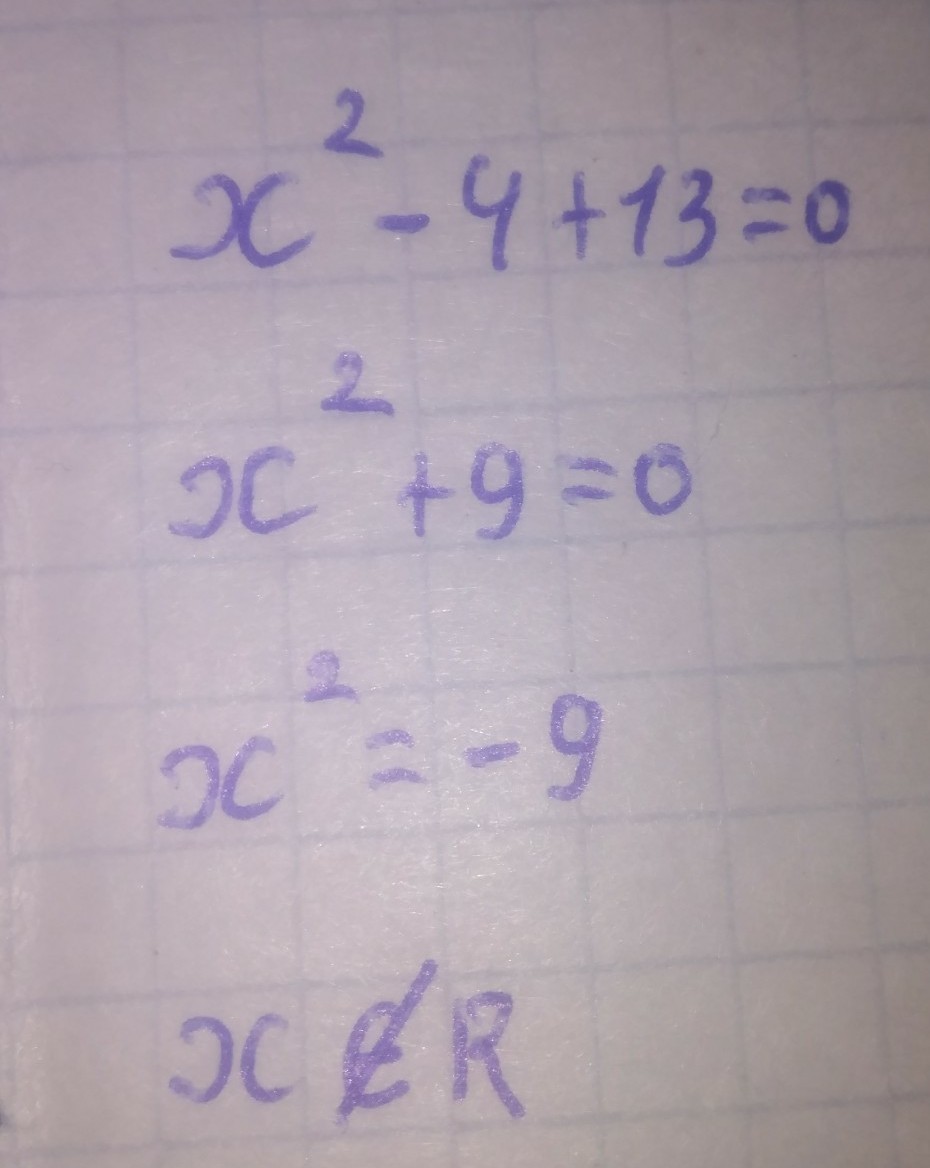 x² - 4 + 13 = 0
x² + 9 = 0
x² = - 9
x ∉ R